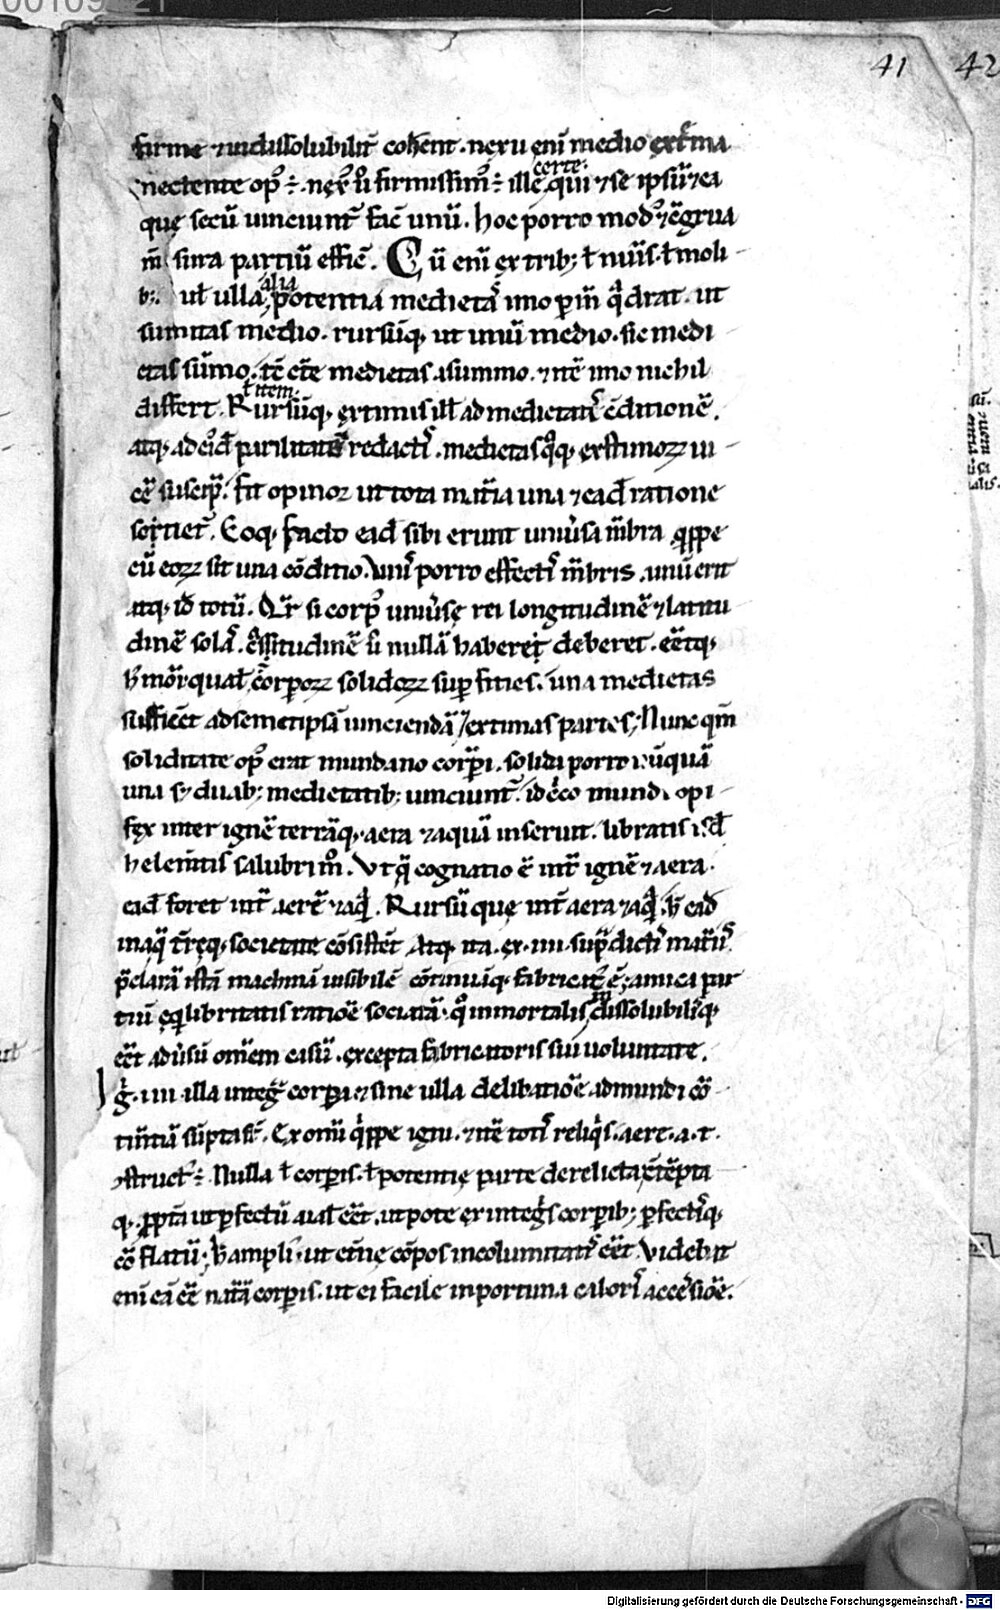 41 42
firme ⁊ indissolubilit̄ coh̄ent. nexu eni medio ext̄ma
nectente op⁹ ÷. nex⁹ ū firmissim⁹ ÷ ille certe. qui ⁊ se ipsū ⁊ ea
quę secū uinciunt᷑ fac̄ unū. hoc porro mod⁹ ⁊ c̄grua
m̄sura partiū effic̄. Cū enī ex trib; ł nūis. ł moli
b;. uł ulla alia potentia medietaſ imo ꝑ in q̄drat. ut
sumitas medio. rursūq, ut imū medio. sic medi
etas sūmo. tc̄ c̄te medietas a summo. ⁊ nc̄ imo nichil
differt. ł item. Rursūq, extimis ill̄ ad medietat̄ c̄ditionē.
atq, ad eīd parilitatē redact̄. medietas q⁰q, extimoꝝ ui
cē suscip̄. fit opinor ut tota mat̄ia una ⁊ ead̄ ratione
sortiet᷑. Eoq, facto ead̄ sibi erunt uniūsa m̄bra q̄ppe
cū eoꝝ sit una cōditio. Uni⁹ porro effecti⁹ m̄bris. unū erit
atq, id totū. Qr̄ si corp⁹ uniūsę rei longitudinē ⁊ latitu
dinē solā. c̄ssitudinē ū nullā haberet deberet. eēt q,
h̄ mōr qualē corpoꝝ solidoꝝ superficies. una medietas
sufficēt ad semetipsā uinciendā / extimas partes; Nunc qm̄
soliditate op⁹ erat mundano corꝑi. solida porro nūquā
una s; duab; medietatib; uinciunt᷑. idc̄co mundi opi
fex inter ignē terrāq, aera ⁊ aquā inseruit. libratis isd̄
helem̄tis salubri m̄. Ut q̄ cognatio ē int̄ ignē ⁊ aera.
ead̄ foret int̄ aerē ⁊ aq̄. Rursū quę int̄ aera ⁊ aq̄. h̄ ead̄
in aq̄ t̄ręq, societate cōsistēt. Atq, ita. ex. iiii. sup̄dict̄ mat̄iis
p̄clarā istā machinā uisibilē cōtinuāq, fabricat⁹ ē; amica par
tiū eq̄libritatis ratiōe sociatā. q⁰ immortalis indissolubilisq,
eēt adūsū om̄em casū. excepta fabricatoris sui uoluntate.
Ig̅. iiii. illa integ̅ corpora ⁊ sine ulla delibatiōe ad mundi cō
tin̄tiā sūpta s̄. Ex omi q̄ppe igni. ⁊ nē toti⁹ reliq̄s. aere. a. t.
ꝯstruct⁹ ÷. Nulla ł corpis. ł potentię parte derelicta c̄tēpta
q, p̄pt̄a ut ꝑfectū aial̄ eēt. utpote ex integ̅s corꝑib; ꝑfectisq,
cōflatū; h̄ ampli⁹. ut et̄nę cōpos incolumitatis eēt. Videbat
enī eā eē natā corpis. ut ei facile inportuna caloris accēsiōe.
Digitalisierung gefördert durch die Deutsche Forschungsgemeinschaft - DFG